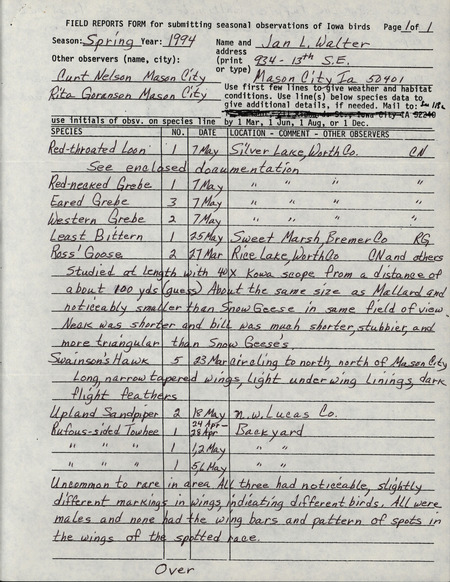 FIELD REPORTS FORM for submitting seasonal observations of Iowa birds Page 1 of 1
Season: Spring Year: 1994 Name and address (print or type) Jan L. Walter
934 - 13th S.E.
Mason City Ia 50401
Other observers (name, city):
Curt Nelson Mason City
Rita Goranson Mason City
Use first few lines to give weather and habitat
conditions. Use line(s) below species data to
give additional details, if needed. Mail to:
Iowa City IA 52240
use initials of obsv. on species line by 1 Mar, 1 Jun, 1 Aug, or 1 Dec.
SPECIES NO. DATE LOCATION - COMMENT - OTHER OBSERVERS
Red-throated Loon 1 7 May Silver Lake, Worth Co. CN
See enclosed documentation
Red-necked Grebe 1 7 May " " "
Eared Grebe 3 7 May " " "
Western Grebe 2 7 May " " "
Least Bittern 1 25 May Sweet Marsh, Bremer Co RG
Ross' Goose 2 27 Mar Rice Lake, Worth Co CN and others
Studied at length with 40X Kowa scope from a distance of
about 100 yds (guess) About the same size as Mallard and
noticeably smaller than Snow Geese in same field of view.
Neck was shorter and bill was much shorter, stubbier, and
more triangular than Snow Geese's.
Swainson's Hawk 5 23 Mar circling to north, north of Mason City
Long, narrow tapered wings, light under wing linings, dark
flight feathers
Upland Sandpiper 2 18 May n.w. Lucas Co.
Rufous-sided Towhee 1 24 Apr - 28 Apr Backyard
" " " 1 1,2 May " "
" " " 1 5,6 May
Uncommon to rare in area. All three had noticeable, slightly
different markings in wings, indicating different birds. All were
males and none had the wing bars and pattern of spots in
the wings of the spotted race.
Over